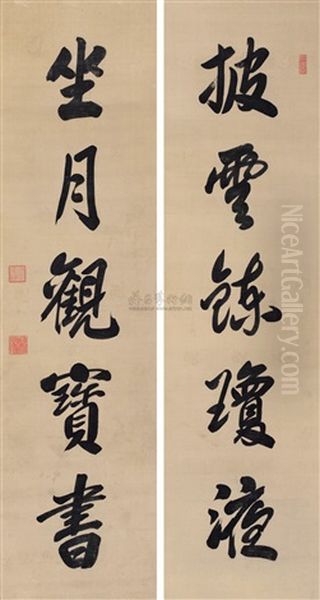 披雲鍊瓊液
坐月觀寶書
NiceArtGallery.com